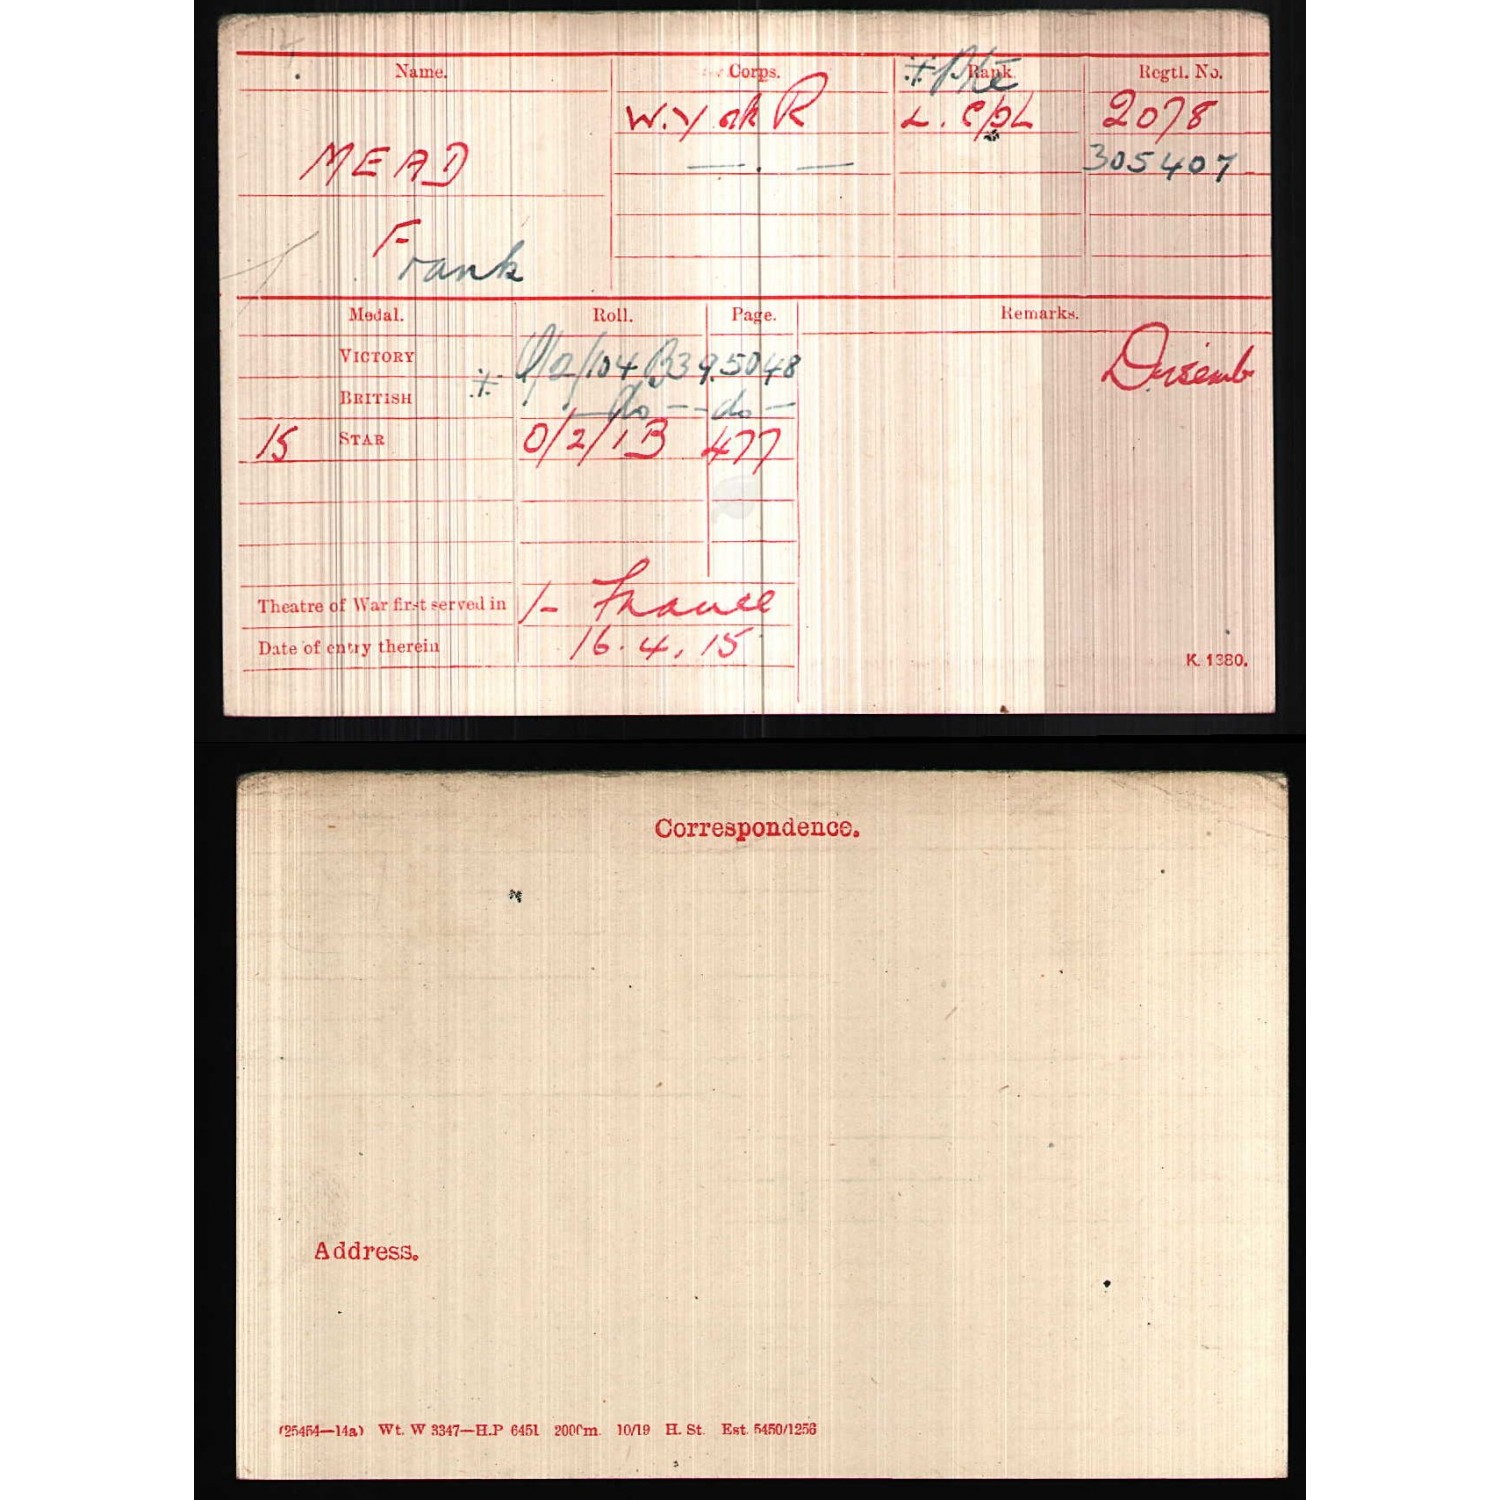 Name. Corps. Rank Regtl. No.
‡ Pte
W. York R L. Cpl 2078
MEAD — . — 305407
Frank
Medal. Roll. Page. Remarks.
VICTORY O/2/104 B39. 5048 Disemb
‡
BRITISH — do — — do —
15 STAR O/2/1B 477
Theatre of War first served in 1- France
Date of entry therein 16. 4. 15
K. 1380.
Correspondence.
Address.
(25454—14a) Wt. W 3347—H.P 6451 2000m. 10/19 H. St. Est. 5450/1256